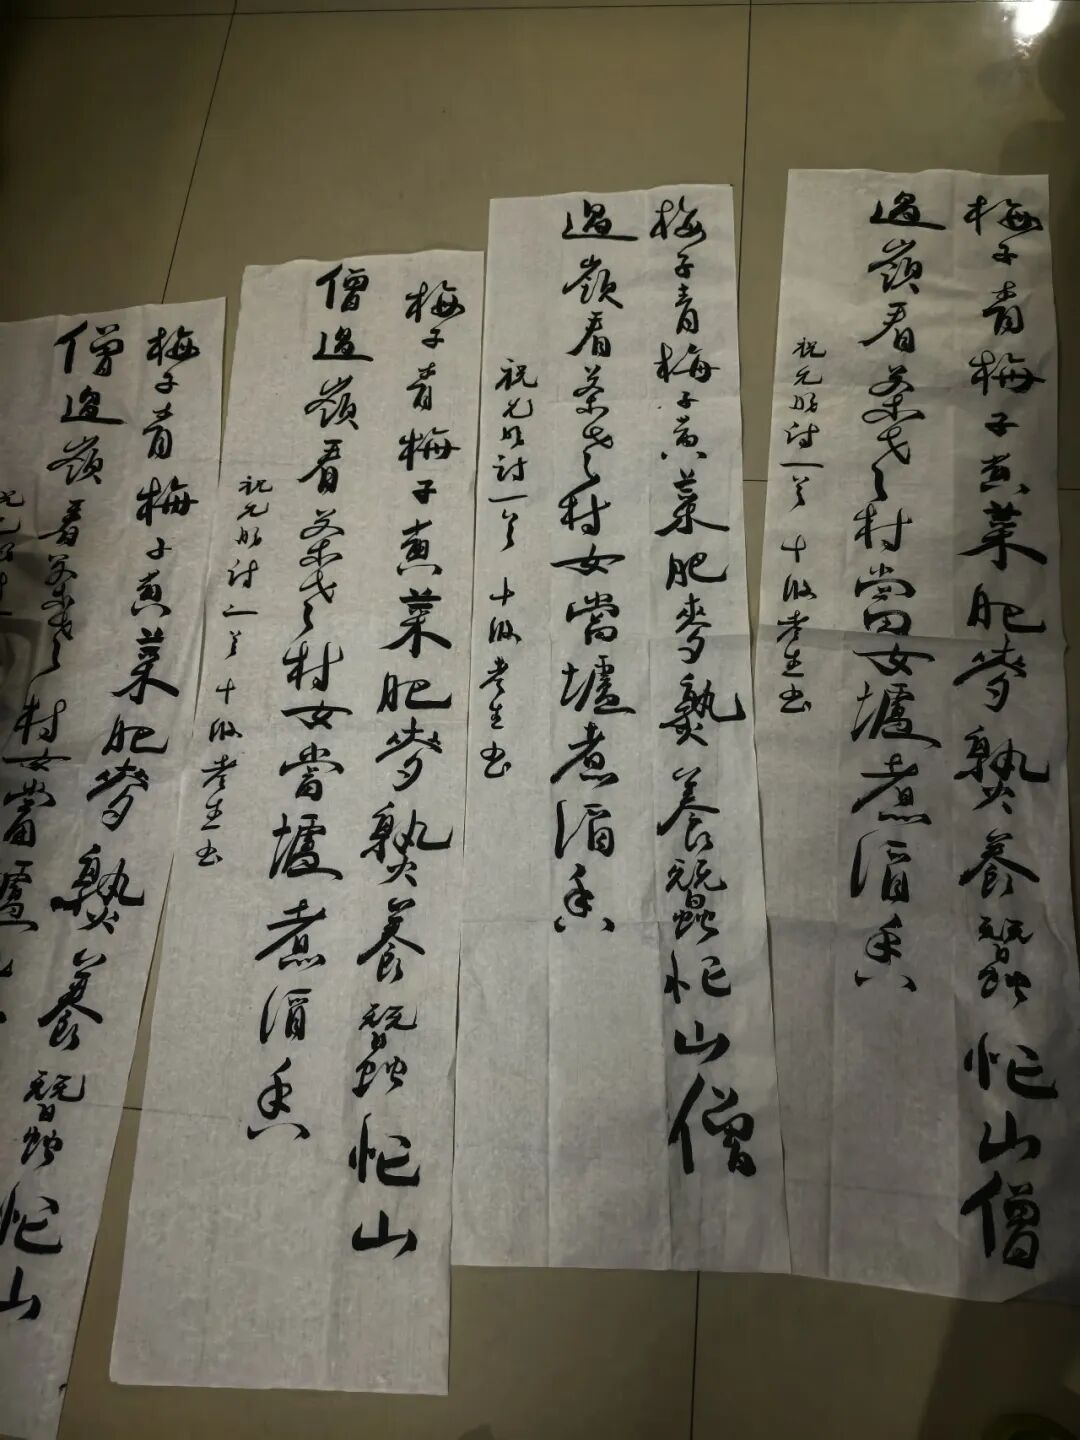 梅子青梅子黃菜肥麥熟養蠶忙山僧
過嶺看茶老村當女壚煮酒香
祝允明詩一首 十 老生书
梅子青梅子黃菜肥麥熟養蠶忙山僧
過嶺看茶老村女當壚煮酒香
祝允明詩一首 十 老生书
梅子青梅子黃菜肥麥熟養蠶忙山
僧過嶺看茶老村女當壚煮酒香
祝允明詩一首 十 老生书
梅子青梅子黃菜肥麥熟養蠶忙山
僧過嶺看茶老村女當壚